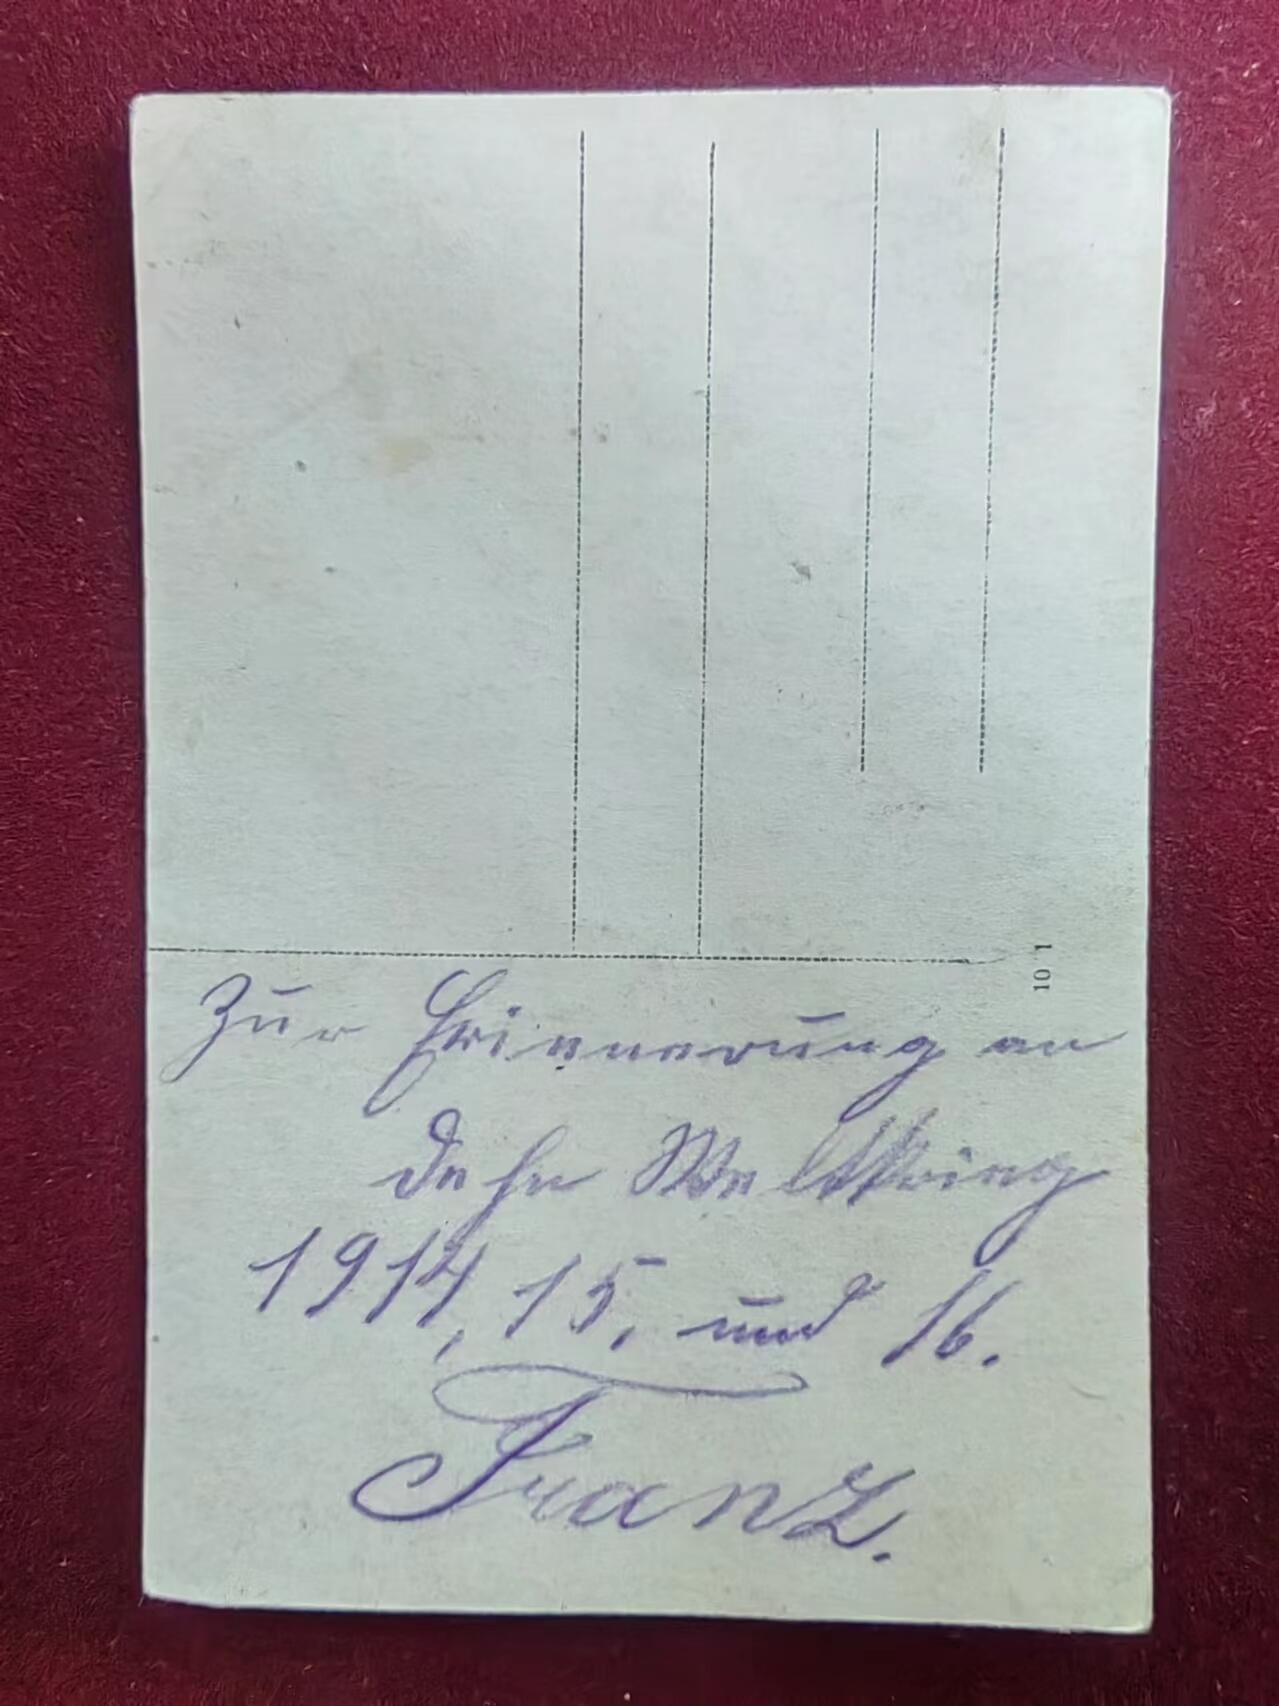 10 1
Zur Erinnerung an
dehn Weltkrieg
1914, 15, und 16.
Franz.